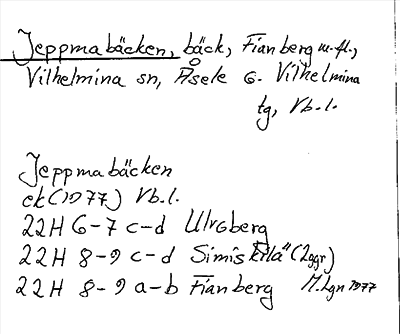 Jeppmabäcken, bäck, Fianberg m.fl.,
Vilhelmina sn, Åsele o. Vilhelmina
tg, Vb.l.
Jeppmabäcken
ek (1977) Vb.l.
22H 6-7 c-d Ulvoberg
22H 8-9 c-d Simiskilä (2ggr)
22H 8-9 a-b Fianberg M.Lgn 1977